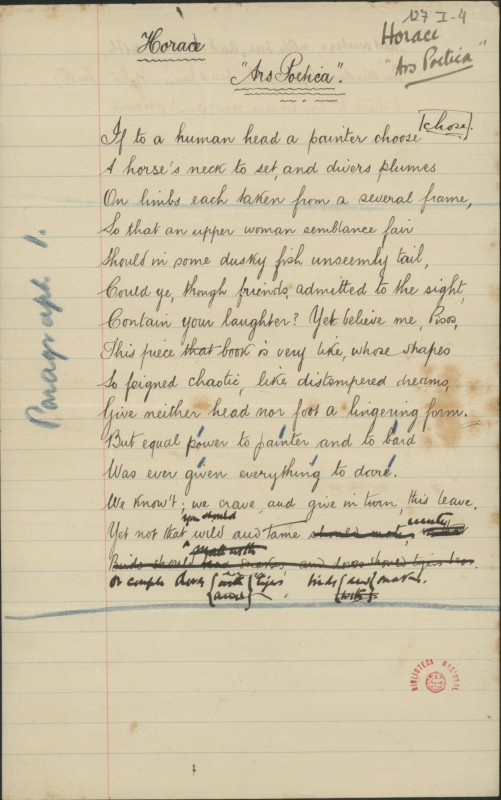 127 I-4
Horace
"Ars Poetica"
Horace
"Ars Poetica".
If to a human head a painter choose [chose].
A horse's neck to set, and divers plumes
On limbs each taken from a several frame,
So that an upper woman semblance fair
Should in some dusky fish unseemly tail,
Could ye, though friends, admitted to the sight,
Contain your laughter? Yet believe me, Pisos,
This piece that book is very like, whose shapes
So feigned chaotic, like distempered dreams,
Give neither head nor foot a lingering form.
But equal power to painter and to bard
Was ever given everything to dare.
We know't; we crave, and give in turn, this leave.
you should unity
Yet not that wild and tame should mate,
mate with
Birds should snakes, and doves should tigers
or couple doves with tigers birds and snakes.
and with
Paragraph 1.
BIBLIOTECA NACIONAL